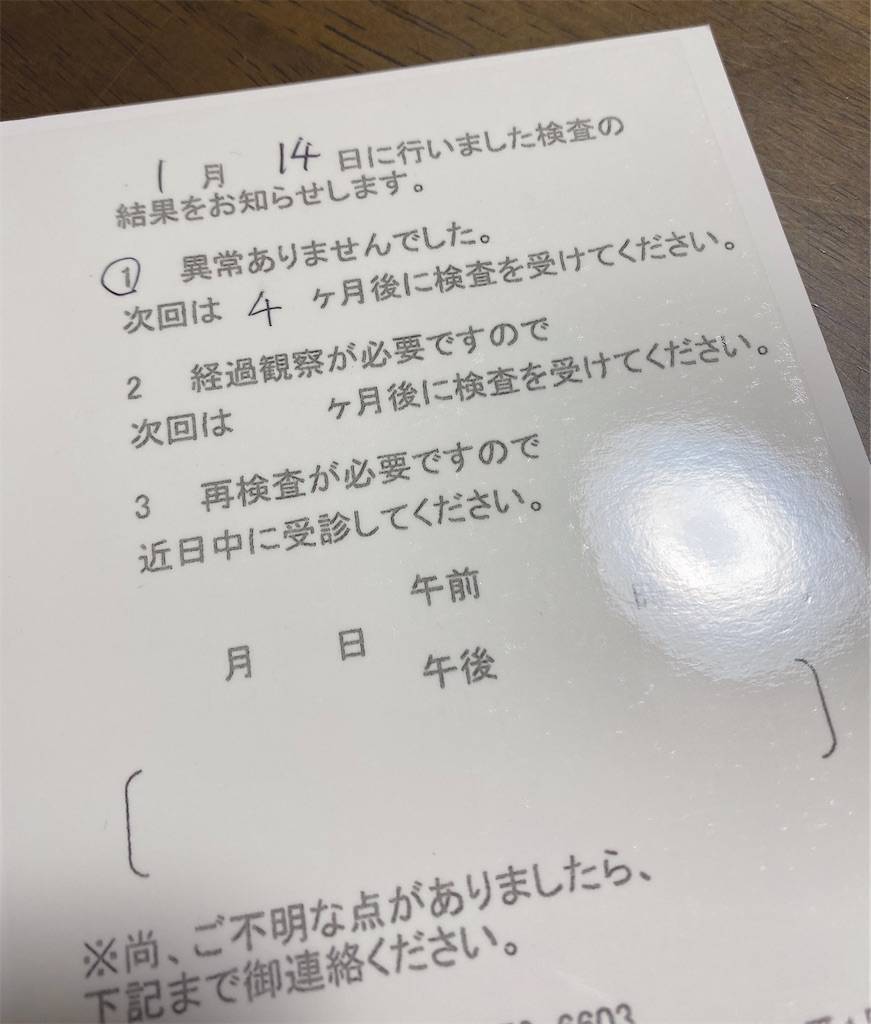 1月 14日に行いました検査の
結果をお知らせします。
① 異常ありませんでした。
次回は 4 ヶ月後に検査を受けてください。
2 経過観察が必要ですので
次回は ヶ月後に検査を受けてください。
3 再検査が必要ですので
近日中に受診してください。
午前
月 日
午後
※尚、ご不明な点がありましたら、
下記まで御連絡ください。
6603